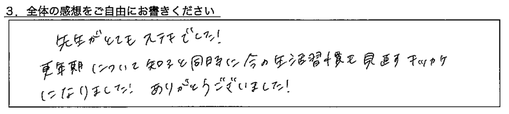 3. 全体の感想をご自由にお書きください
先生がとてもステキでした!
更年期について知ると同時に今の生活習慣を見直すキッカケ
になりました! ありがとうございました!